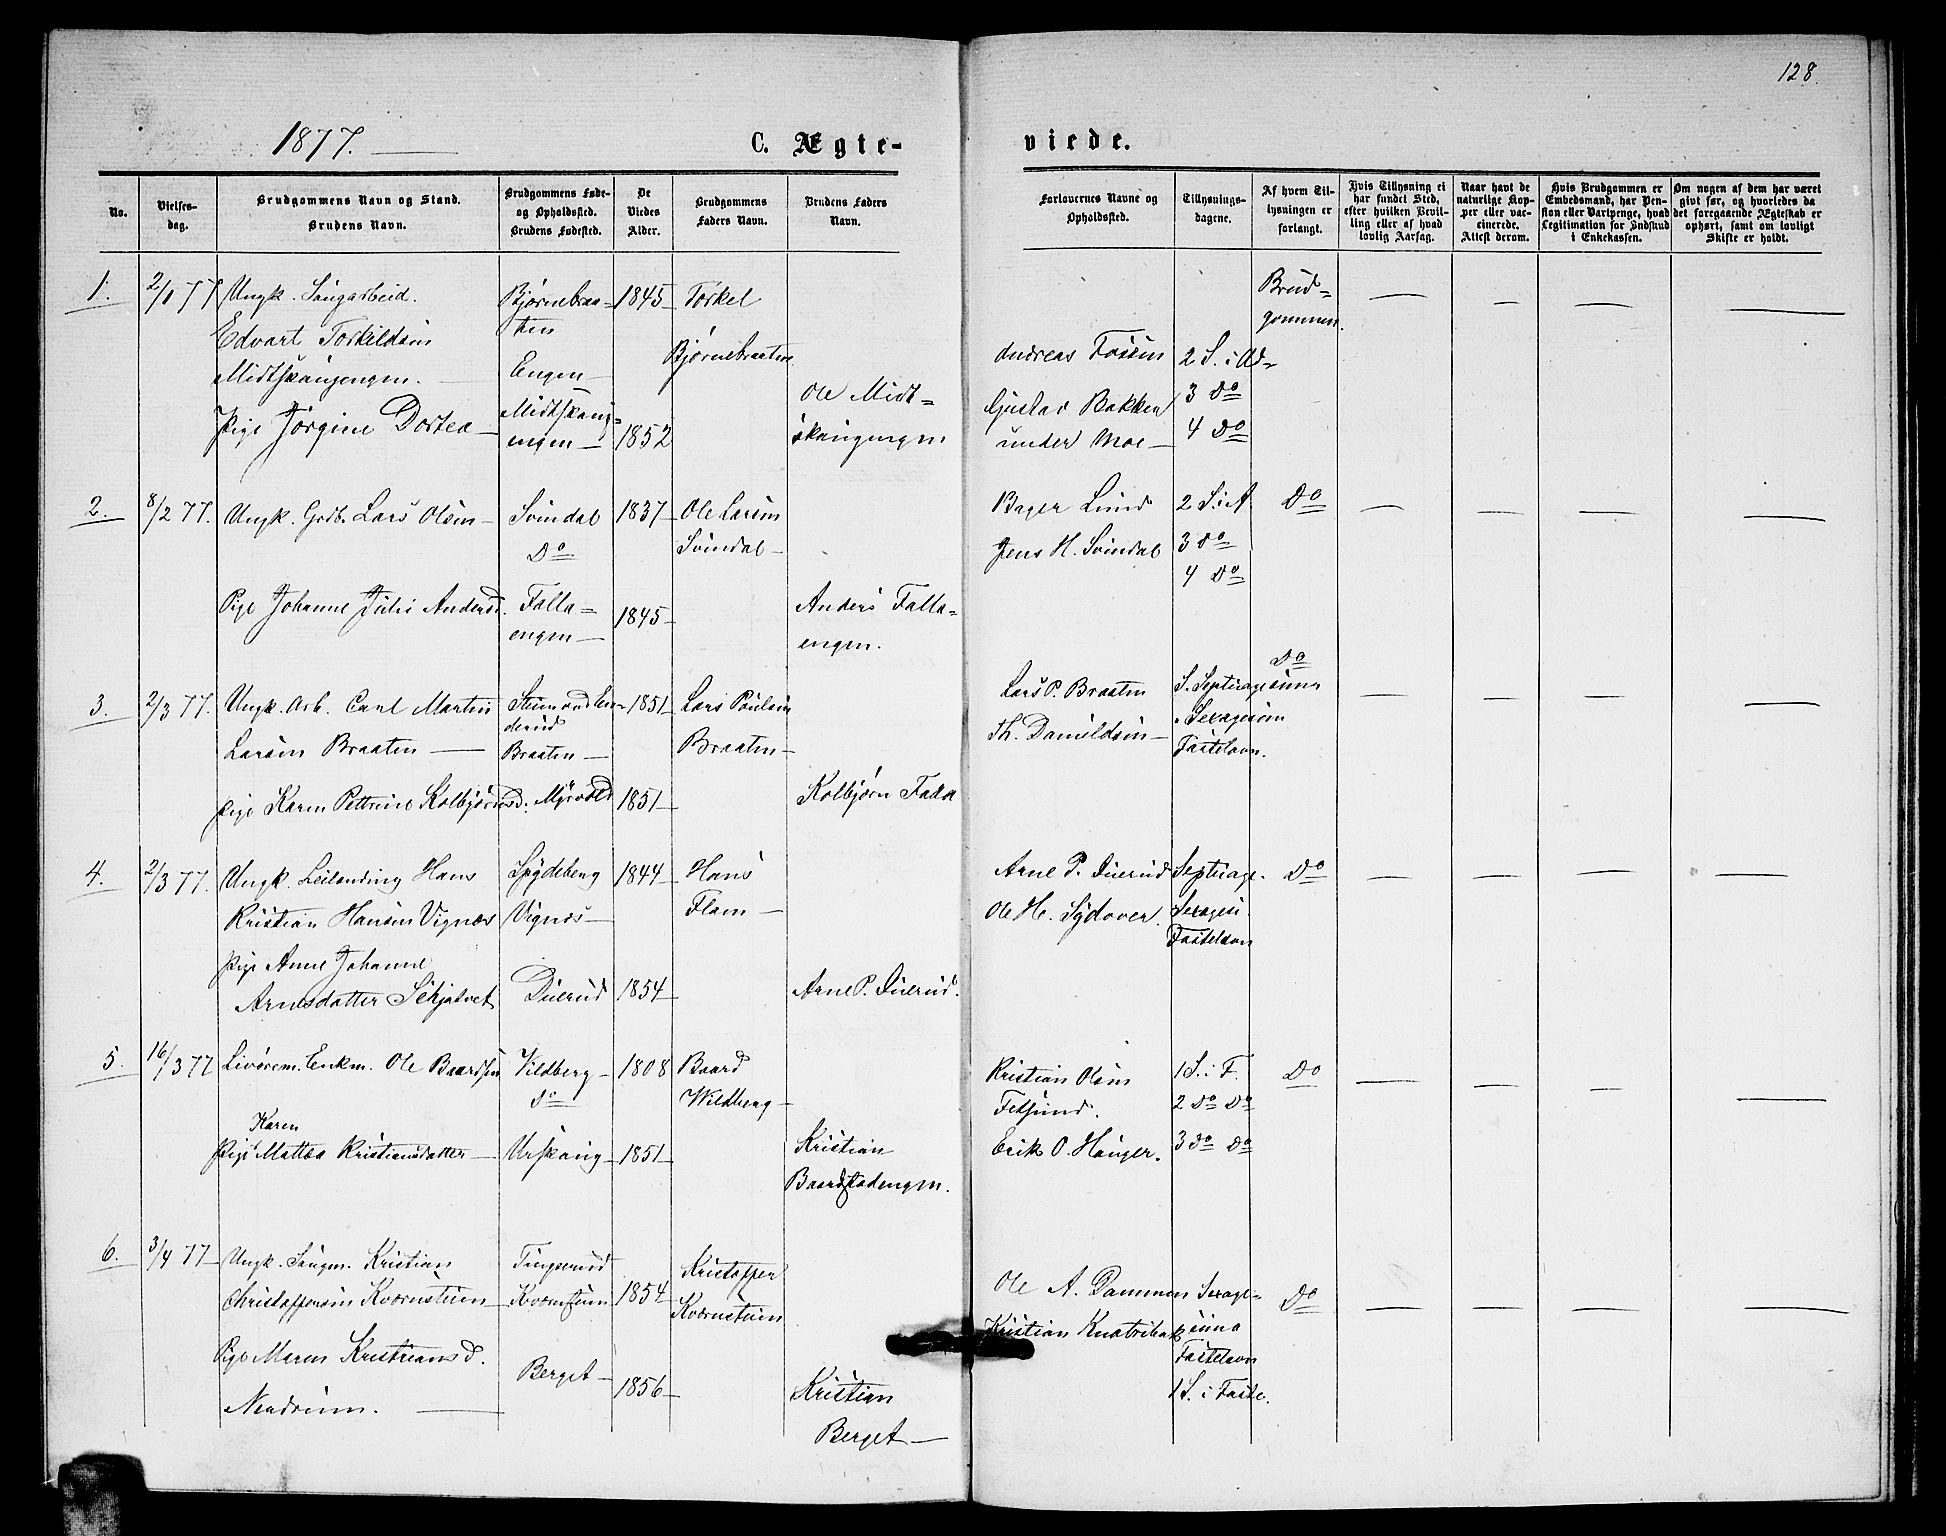 128.
1877.
C. Ægte-
viede.
No.
Vielses-
dag.
Brudgommens Navn og Stand.
Brudens Navn.
Brudgommens Føde-
og Opholdssted.
Brudens Fødested.
De
Viedes
Alder.
Brudgommens
Faders Navn.
Brudens Faders
Navn.
Forlovernes Navne og
Opholdssted.
Tillysnings-
dagene.
Af hvem Til-
lysningen er
forlangt.
Hvis Tillysning ei
har fundet Sted,
efter hvilken Bevil-
ling eller af hvad
lovlig Aarsag.
Naar havt de
naturlige Kop-
per eller vac-
cinerede.
Attest derom.
Hvis Brudgommen er
Embedsmand, har Pen-
sion eller Vartpenge, hvad
Legitimation for Indskud
i Enkekassen.
Om nogen af dem har været
givt før, og hvorledes da
det foregaaende Ægteskab er
ophørt, samt om lovligt
Skifte er holdt.
1.
2/1 77
Ungk. Saugarbeid.
Edvart Torkildsen
Midtskaugengen. —
Pige Jørgine Dortea —
Bjørnebraa-
ten
Engen —
Midtskaug-
engen —
1845
1852
Torkel
Bjørnebraaten
Ole Midt-
skaugengen
Andreas Fossen
Gustav Bakken
under Moe —
2 S. i Ad-
3 Do
4 Do
Brud-
gommen.
2.
8/2 77.
Ungk. Grdb. Lars Olsen —
Pige Johanne Julie Andersd.
Svindal
Do
Falla-
engen —
1837
1845
Ole Larsen
Svindal —
Anders Falla-
engen.
Bager Lund
Jens H. Svindal
2 S. i A
3 Do
4 Do
Do
3.
2/3 77.
Ungk. Arb. Carl Martin
Larsen Braaten —
Pige Karen Petrine Kolbjørnsd.
Braaten —
Myrvold
1851
1851
Lars Paulsen
Braaten —
Kolbjørn Falla
Lars P. Braaten
Th. Danielsen —
S. Septuagesima
" Sexagesim
Fastelavn.
Do
4.
2/3 77.
Ungk. Leilending Hans
Kristian Hansen Vignæs
Pige Anne Johanne
Arnesdatter Skjatvet
Spydeberg
Vignæs —
Duerud
1844
1854
Hans
Flam —
Arne P. Duerud.
Arne P. Duerud
Ole H. Sydover.
Septuage.
Sexagesi.
Fastelavn
Do
5.
16/3 77
Livørem. Enkm. Ole Baardsen
Karen
Pige Mattea Kristiansdatter —
Vildberg —
Do
Urskoug —
1808
1851
Baard
Wildberg —
Kristian
Baardstadengen.
Kristian Olsen
Fetsund.
Erik O. Hauger.
1 S. i F.
2 Do Do
3 Do Do
Do
6.
3/4 77
Ungk. Saugm. Kristian
Christoffersen Kvernstuen
Pige Maren Kristiansd.
Nordrum. —
Tingserud
Kvernstuen
Berget —
1854
1856
Kristoffer
Kvernstuen
Kristian
Berget —
Ole A. Dammen
Kristian Knatribak
Sexage-
sima
Fastelavn
1 S. i Faste.
Do